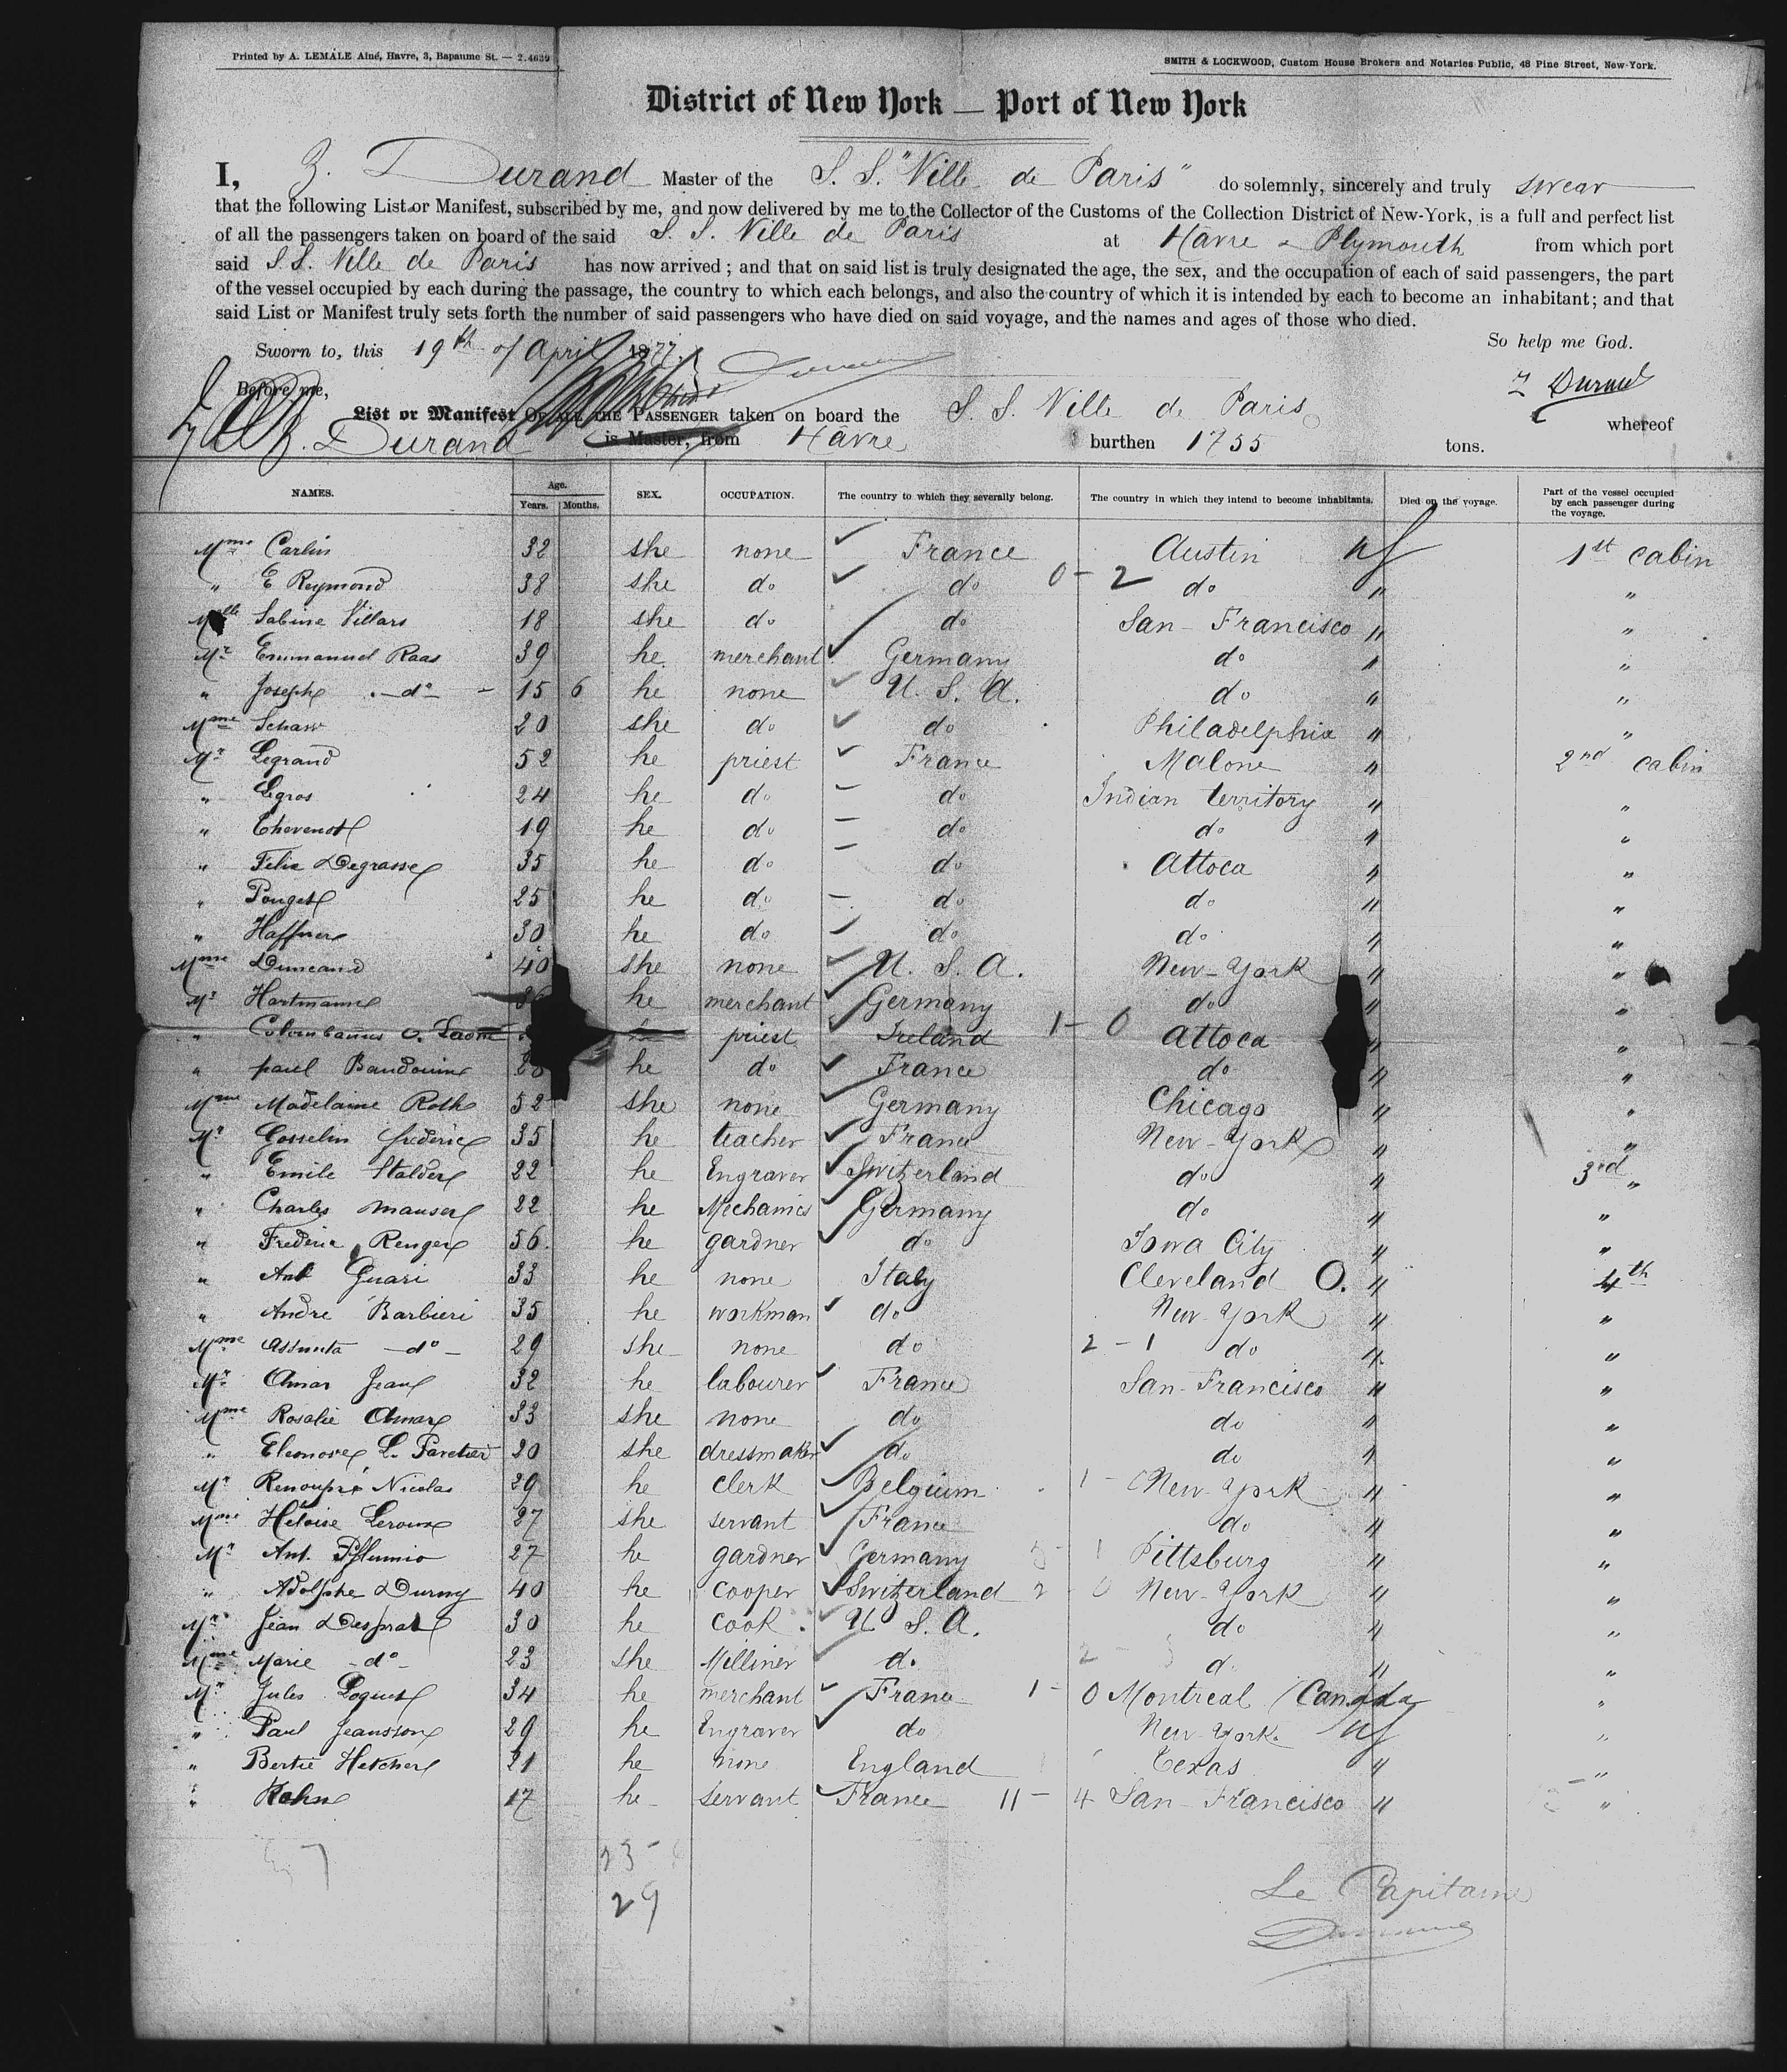 Printed by A. LEMÂLE Ainé, Havre, 3, Bapaume St. — 2.4639
SMITH & LOCKWOOD, Custom House Brokers and Notaries Public, 48 Pine Street, New-York.
District of New York — Port of New York
I, Z. Durand Master of the S. S. "Ville de Paris" do solemnly, sincerely and truly swear
that the following List or Manifest, subscribed by me, and now delivered by me to the Collector of the Customs of the Collection District of New-York, is a full and perfect list
of all the passengers taken on board of the said S. S. Ville de Paris at Havre & Plymouth from which port
said S. S. Ville de Paris has now arrived; and that on said list is truly designated the age, the sex, and the occupation of each of said passengers, the part
of the vessel occupied by each during the passage, the country to which each belongs, and also the country of which it is intended by each to become an inhabitant; and that
said List or Manifest truly sets forth the number of said passengers who have died on said voyage, and the names and ages of those who died.
So help me God.
Sworn to, this 19th of April 1877.
Before me, Durand
List or Manifest OF ALL THE PASSENGER taken on board the S. S. Ville de Paris whereof
Z. Durand is Master, from Havre burthen 1755 tons.
NAMES. Age. Years. Months. SEX. OCCUPATION. The country to which they severally belong. The country in which they intend to become inhabitants. Died on the voyage. Part of the vessel occupied by each passenger during the voyage.
Mme Carlin 32 she none France Austin 1st cabin
" E Reymond 38 she do do 0 - 2 do " "
Mlle Sabine Villars 18 she do do San-Francisco " "
Mr Emmanuel Raas 39 he merchant Germany do " "
" Joseph —do— 15 6 he none U. S. A. do " "
Mme Schaw 20 she do do Philadelphia " "
Mr Legrand 52 he priest France Malone " 2nd cabin
" Legros 24 he do do Indian territory " "
" Thevenot 19 he do do do " "
" Felix Degrasse 35 he do do Attoca " "
" Pouget 25 he do do do " "
" Haffner 30 he do do do " "
Mme Duncand 40 she none U. S. A. New-York " "
Mr Hartmann 36 he merchant Germany do " "
" Colombanus O. priest Ireland 1 - 0 Attoca " "
" paul Baudouin he do France do " "
Mme Madelaine Roth 52 she none Germany Chicago " "
Mr Gosselin frederic 35 he teacher France New-York " "
" Emile Stalder 22 he Engraver Switzerland do " 3rd "
" Charles Mauser 22 he Mechanics Germany do " "
" Frederic Renger 56 he gardner do Iowa City " "
" Ant Guari 33 he none Italy Cleveland O. " 4th
" Andre Barbieri 35 he workman do New-York " "
Mme Assunta —do— 29 she none do 2 - 1 do " "
Mr Amar Jean 32 he labourer France San-Francisco " "
Mme Rosalie Amar 33 she none do do " "
" Eleonore L. 20 she dressmaker do do " "
Mr Renoupré Nicolas 29 he clerk Belgium 1 - New-York " "
Mme Heloise Leroux 27 she servant France do " "
Mr Ant. 27 he gardner Germany Pittsburg " "
" Adolphe Durny 40 he cooper Switzerland 2 - 0 New-York " "
Mr Jean Desprat 30 he cook U. S. A. do " "
Mme Marie —do— 23 she Milliner do do " "
Mr Jules Loquet 34 he merchant France 1 - 0 Montreal (Canada "
" Paul Jeansson 29 he Engraver do New-York "
" Bertie Hetcher 21 he none England Texas " "
" Kohn 17 he servant France 11 - 4 San-Francisco " "
7
23 -
29
Le Capitaine
Durand